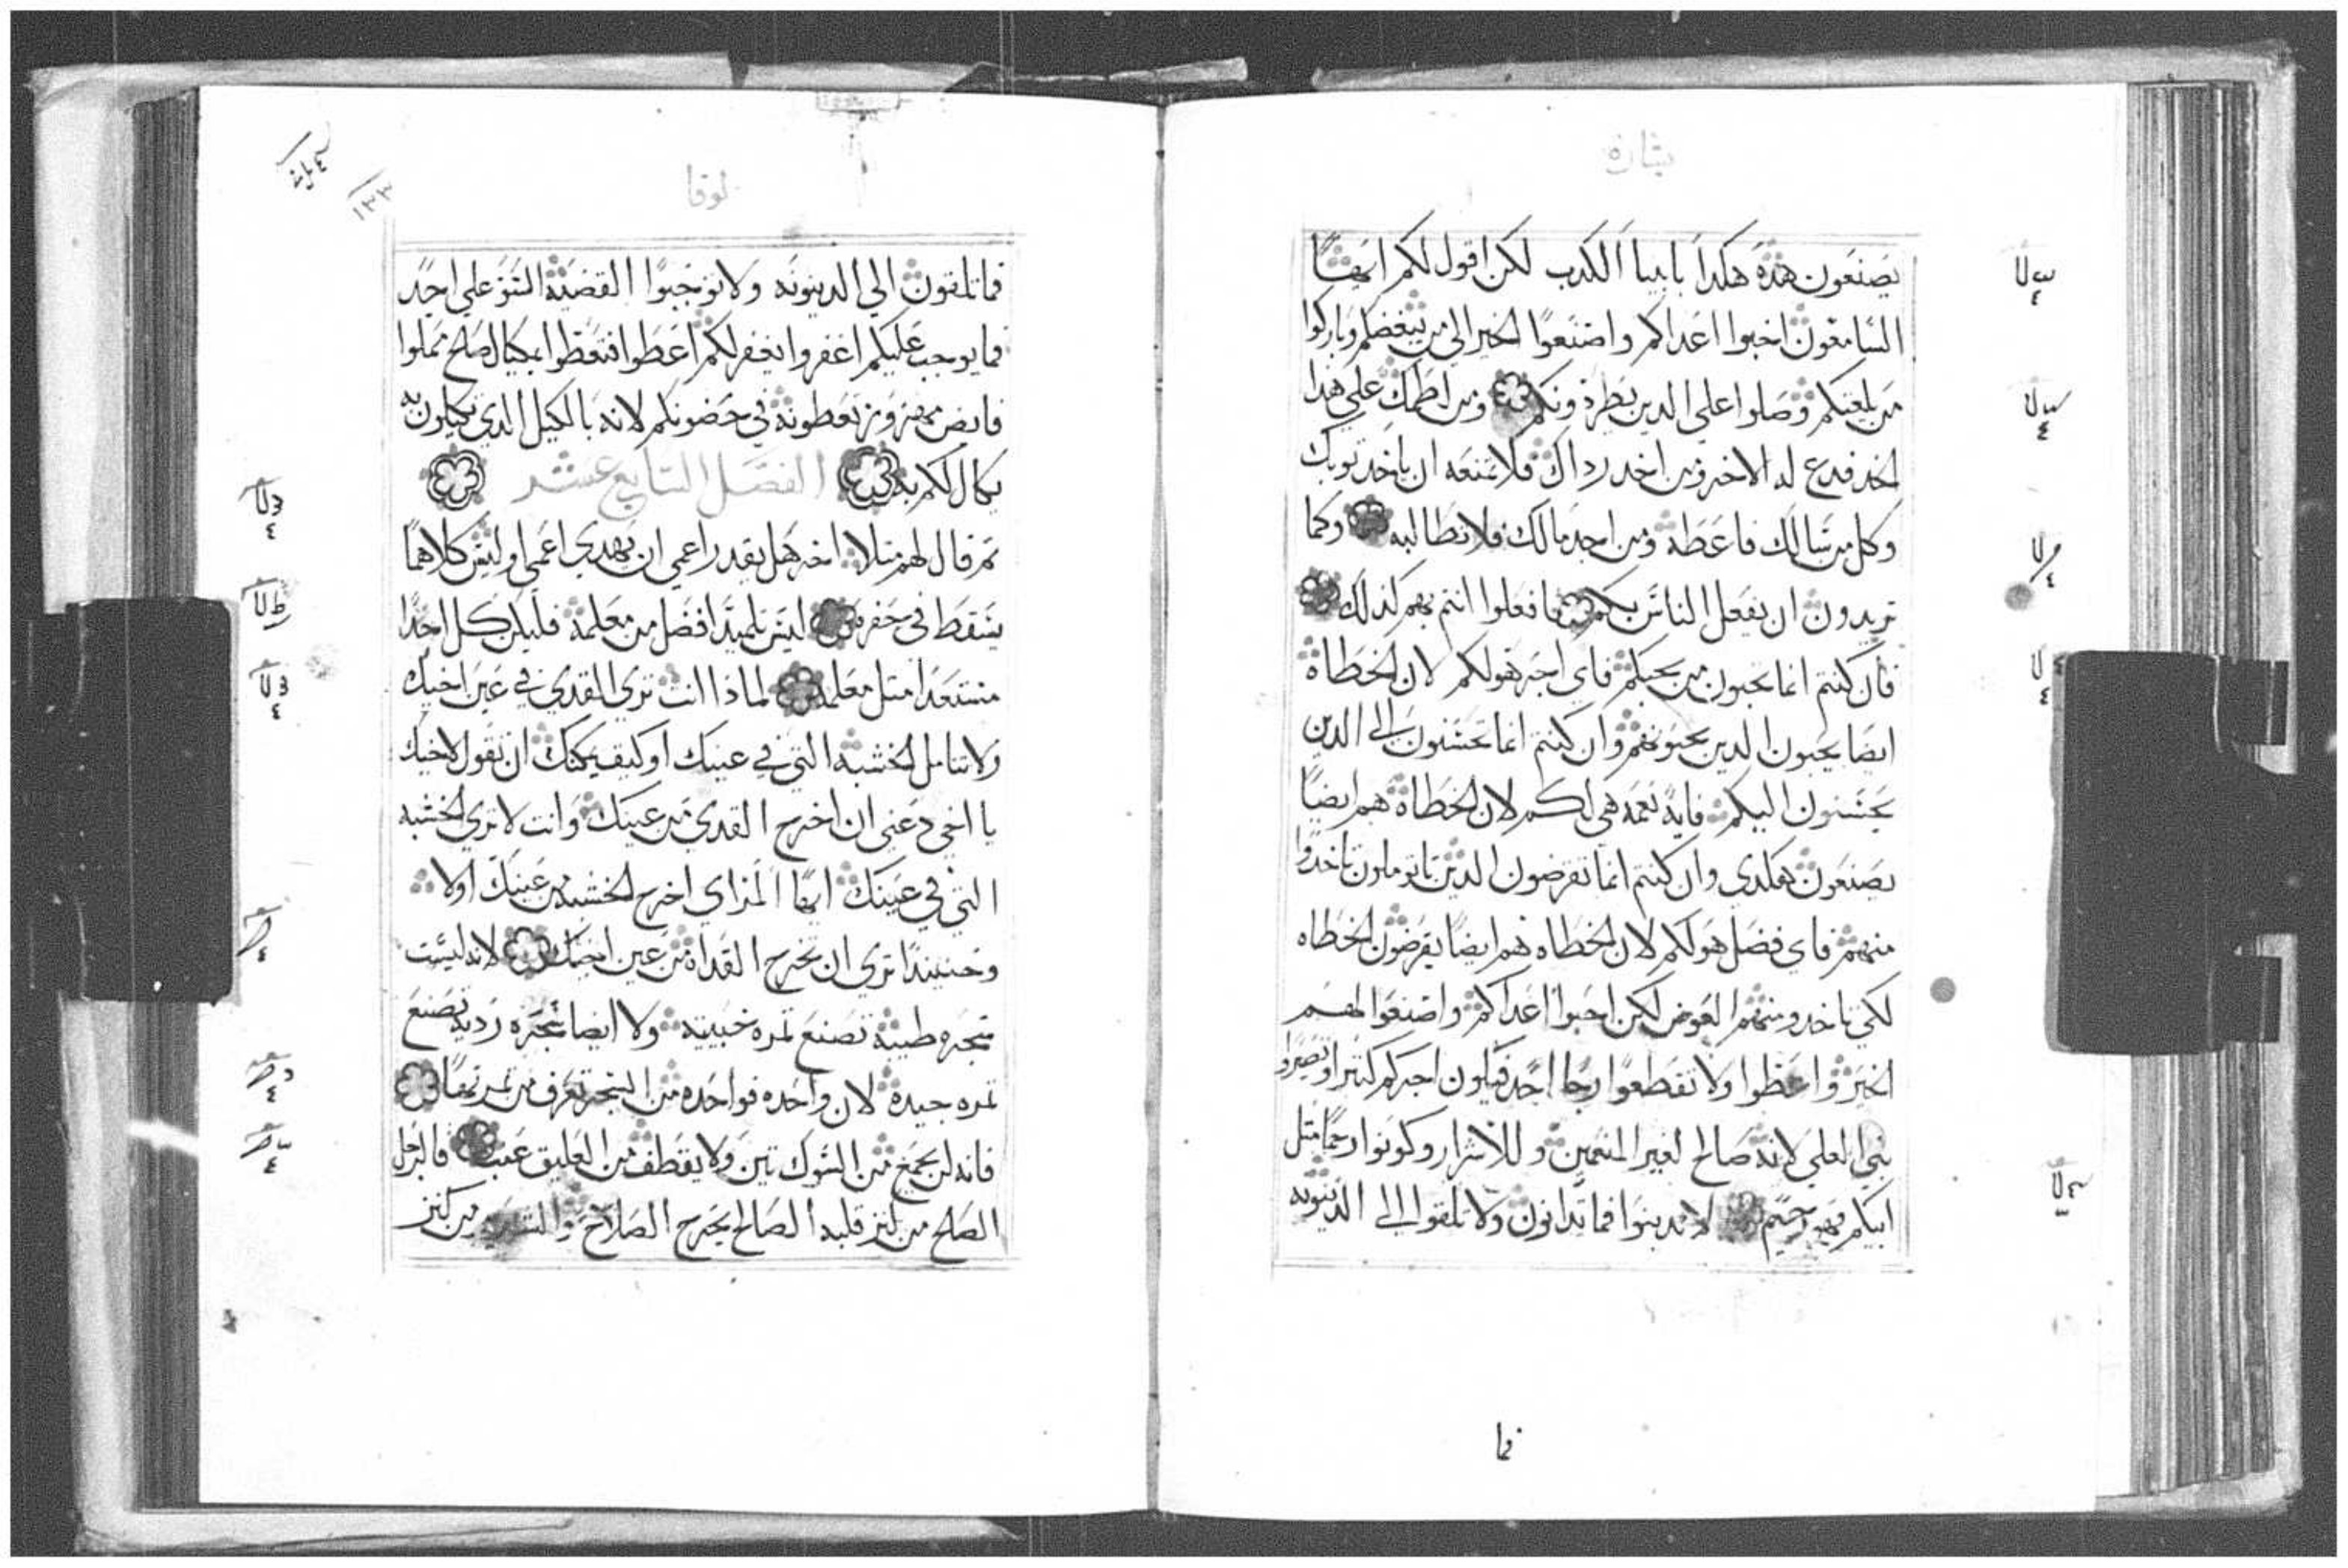 بشارة
يصنعون هذه هكدا بابيا الكدب لكن اقول لكم ايها
السامعون احبوا اعداكم واصنعوا الخير الي من يبغضكم وباركوا
من يلعنكم وصلوا علي الدين يطردونكم ومن لطمك علي هذا
الخد فدع له الاخر ومن اخد رداك فلا تمنعه ان ياخد توبك
وكل من سالك فاعطه ومن اخد مالك فلا تطالبه وكما
تريدون ان يفعل الناس بكم فافعلوا انتم بهم كذلك
فان كنتم انما تحبون من يحبكم فاي اجر هو لكم لان الخطاة
ايضا يحبون الدين يحبونهم وان كنتم انما تحسنون الى الدين
يحسنون اليكم فاية نعمه هي لكم لان الخطاة هم ايضا
يصنعون هكدي وان كنتم انما تقرضون الدين تاتوملون تاخدوا
منهم فاي فضل هو لكم لان الخطاه هم ايضا يقرضون الخطاه
لكي ياخدو منهم العوض لكن احبوا اعداكم واصنعوا لهم
الخير واعطوا ولا تقطعوا رجا احد فيكون اجركم كتيرا وتصيروا
بني العلي لانه صالح لغير المنعمين وللاشرار وكونوا رحما متل
ابيكم فهو رحيم لا تدينوا فما تدانون ولا تلقوا الى الدينونه
فما
لوقا
١٣٣
فما تلقون الي الدينونه ولا توجبوا القضية السو علي احد
فما يوجب عليكم اغفروا يغفر لكم اعطوا فتعطوا بمكيال صالح مملوا
فايض مهزوز تعطونه في حضونكم لانه بالكيل الدي تكيلون به
يكال لكم به الفصل السابع عشر
تم قال لهم متلا اخر هل يقدر اعمي ان يهدي اعمي اوليس كلاهما
يسقط في حفره ليس تلميدا افضل من معلمه فليكن كل احدا
مستعدا متل معلمه لماذا انت تري القدي في عين اخيك
ولا تتامل الخشبه التي في عينك او كيف يمكنك ان تقول لاخيك
يا اخي دعني ان اخرج القدي من عينك وانت لا تري الخشبه
التي في عينك ايها المراي اخرج الخشبه من عينك اولا
وحينيدا تري ان تخرج القداه من عين اخيك لانه ليست
شجره طيبة تصنع تمره خبيته ولا ايضا شجره رديه تصنع
تمره جيدة لان واحده فواحده من الشجر تعرف من تمرتها
فانه لن يجمع من الشوك تين ولا يقطف من العليق عنب فالرجل
الصالح من كنز قلبه الصالح يخرج الصلاح من كنز